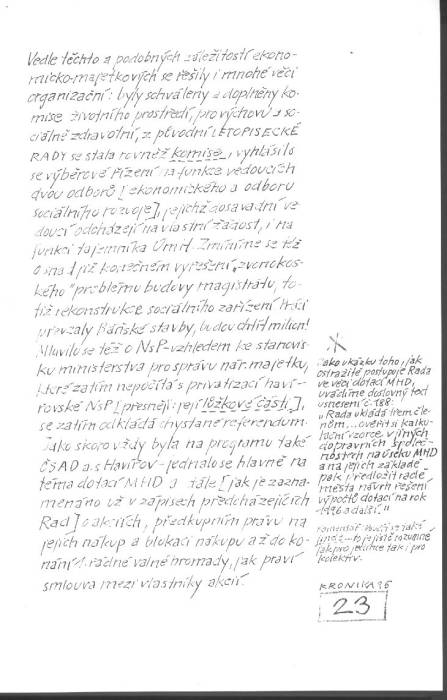 Vedle těchto a podobných záležitostí ekono-
micko-majetkových se řešily i mnohé věci
organizační: byly schváleny a doplněny ko-
mise životního prostředí, pro výchovu a so-
ciálně zdravotní, z původní LETOPISECKÉ
RADY se stala rovněž komise, vyhlásilo
se výběrové řízení na funkce vedoucích
dvou odborů [ekonomického a odboru
sociálního rozvoje], jejichž dosavadní ve-
doucí odcházejí na vlastní žádost, i na
funkci tajemníka ÚmH. Zmíníme se též
o snad již konečném vyřešení „zvonokos-
kého" problému budovy magistrátu, to-
tiž rekonstrukce sociálního zařízení. Práci
převzaly Báňské stavby, budou chtít milion!
Mluvilo se též o NsP-vzhledem ke stanovis-
ku ministerstva pro správu nár. majetku,
které zatím nepočítá s privatizací haví-
řovské NsP [přesněji: její lůžkové části],
se zatím odkládá chystané referendum.
Jako skoro vždy byla na programu také
ČSAD a.s. Havířov-jednalo se hlavně na
téma dotací MHD a dále [jak je zazna-
menáno už v zápisech předcházejících
Rad] o akciích, předkupním právu na
jejich nákup a blokaci nákupu až do ko-
nání řádné valné hromady, jak praví
smlouva mezi vlastníky akcií.
Jako ukázku toho, jak
ostražitě postupuje Rada
ve věci dotací MHD,
uvádíme doslovný text
usnesení č. 188:
„Rada ukládá
ověřit si kalku-
lační vzorce v jiných
dopravních společ-
nostech na úseku MHD
a na jejich základě
pak předložit radě
města návrh řešení
výpočtů dotací na rok
1996 a další."
je jistě rozumné
jak pro jedince tak i pro
kolektiv.
KRONIKA 96
23